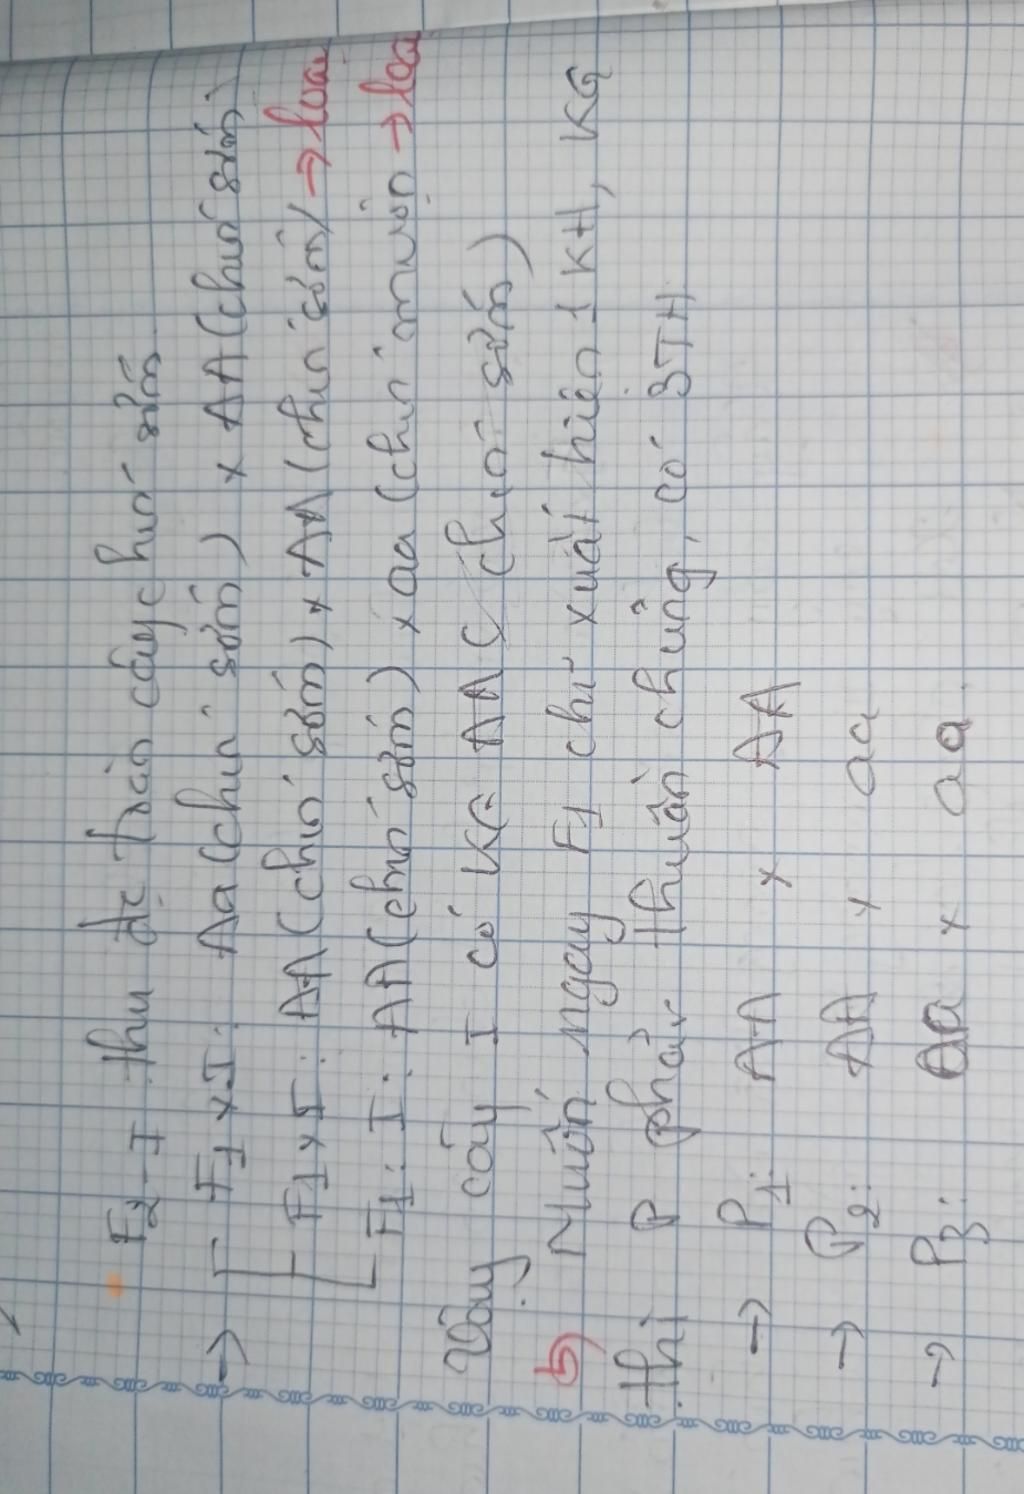 F2 - I thu đc toàn cây chín sớm
→ F1 x I: Aa (chín sớm) x AA (chín sớm)
F1 x I: AA (chín sớm) x AA (chín sớm) → loại
F1: I: AA (chín sớm) x aa (chín muộn → loại
Vậy cây I có KG AA (chín sớm)
b) Muốn ngay F1 chỉ xuất hiện 1 KH, KG
thì P phải thuần chủng, có 3TH
→ P1: AA x AA
→ P2: AA x aa
→ P3: aa x aa